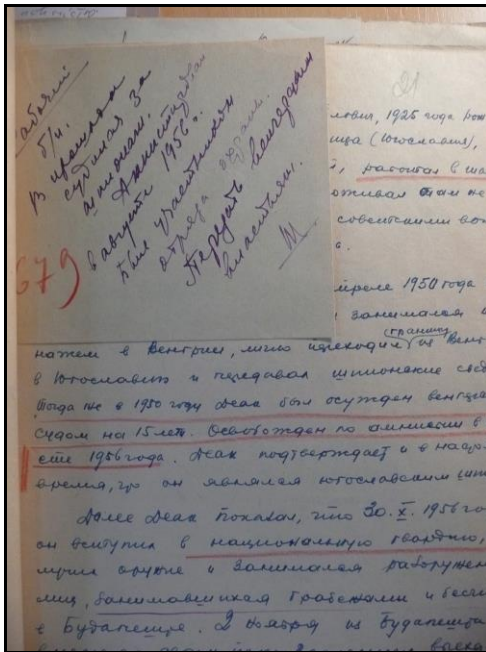 Рабочий
б/п.
В прошлом
судился за
шпионаж.
Амнистирован
в августе 1956 г.
Был участником
отряда охраны.
Передать венгерским
властям.
679
ович, 1925 года рож
ица (Югославия),
й, работал в ша
роживал там не
советскими во
преле 1950 года
занимался
границу
нажем в Венгрии, лично переходил из Венг
в Югославию и передавал шпионские свед
Тогда же в 1950 году Деак был осужден венгер
судом на 15 лет. Освобожден по амнистии в
сте 1956 года. Деак подтверждает и в наст
время, что он являлся югославским шп
Далее Деак показал, что 30.X.1956 го
он вступил в национальную гвардию,
лучил оружие и занимался разоружен
лиц, занимавшихся грабежами и бесч
в Будапеште. 2 ноября из Будапешта